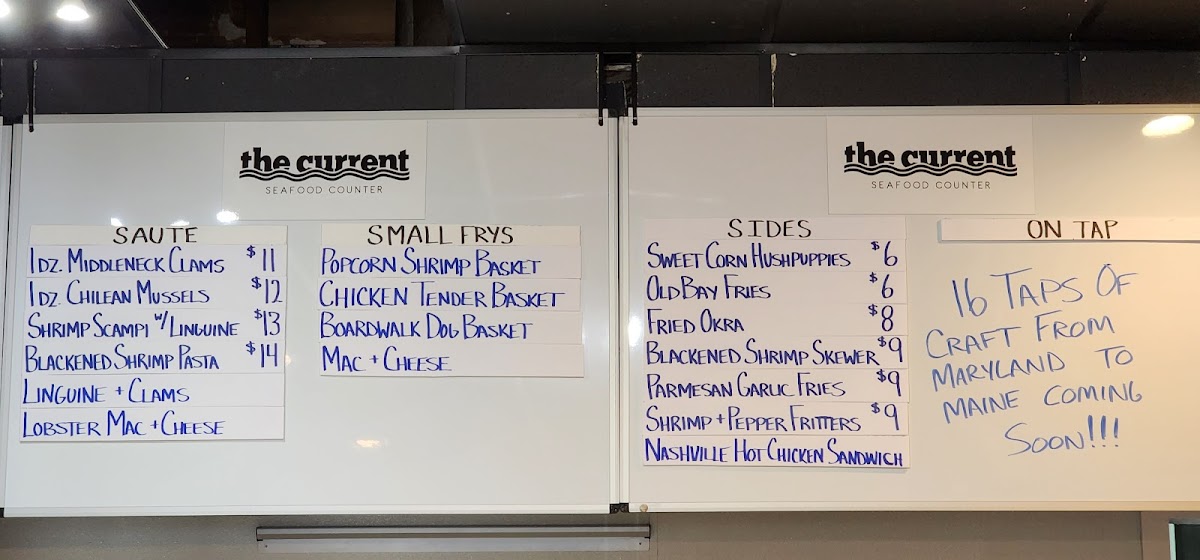 the current
SEAFOOD COUNTER
SAUTE
1 DZ. MIDDLENECK CLAMS $11
1 DZ. CHILEAN MUSSELS $12
SHRIMP SCAMPI W/ LINGUINE $13
BLACKENED SHRIMP PASTA $14
LINGUINE + CLAMS
LOBSTER MAC + CHEESE
SMALL FRYS
POPCORN SHRIMP BASKET
CHICKEN TENDER BASKET
BOARDWALK DOG BASKET
MAC + CHEESE
the current
SEAFOOD COUNTER
SIDES
SWEET CORN HUSHPUPPIES $6
OLD BAY FRIES $6
FRIED OKRA $8
BLACKENED SHRIMP SKEWER $9
PARMESAN GARLIC FRIES $9
SHRIMP + PEPPER FRITTERS $9
NASHVILLE HOT CHICKEN SANDWICH
ON TAP
16 TAPS OF
CRAFT FROM
MARYLAND TO
MAINE COMING
SOON!!!